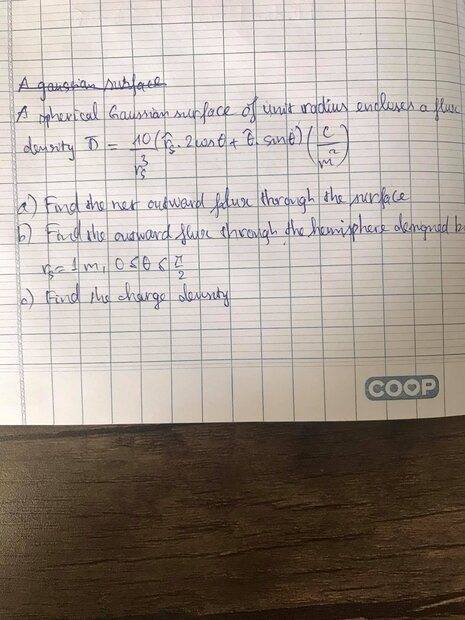 A gaussian surface
A spherical Gaussian surface of unit radius encloses a flux
density D = 10/r_s^3 (r̂_s . 2cosθ + θ̂ . sinθ) (C/m^2)
a) Find the net outward flux through the surface
b) Find the outward flux through the hemisphere designed b
r_s = 1 m, 0 ≤ θ ≤ π/2
c) Find the charge density
COOP